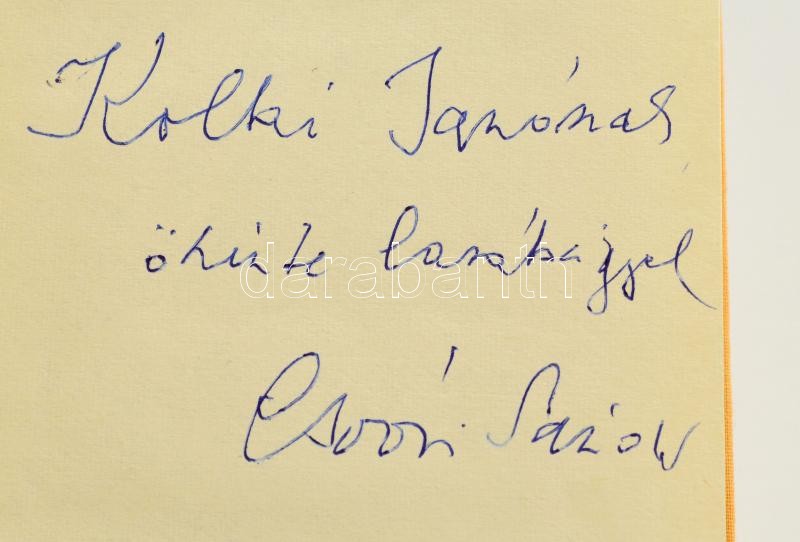 Kolki Janónak
őszinte barátsággal
Csoóri Sándor
darabanth